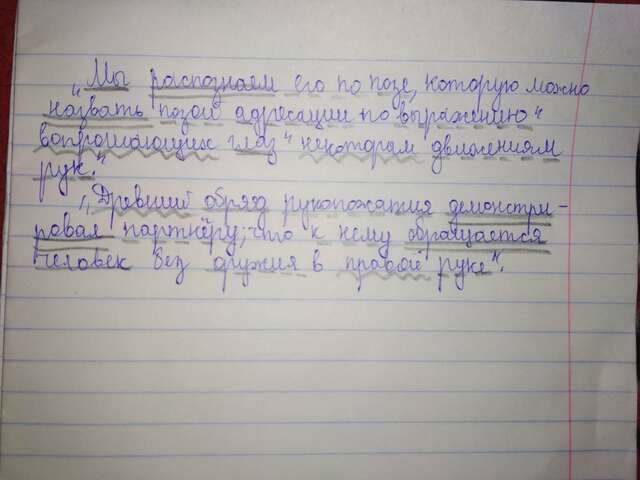 „Мы распознаем его по позе, которую можно
назвать позой адресации по „выражению"
вопрошающих глаз" некоторым движениям
рук."
„Древний обряд рукопожатия демонстри-
ровал партнёру, что к нему обращается
человек без оружия в правой руке".